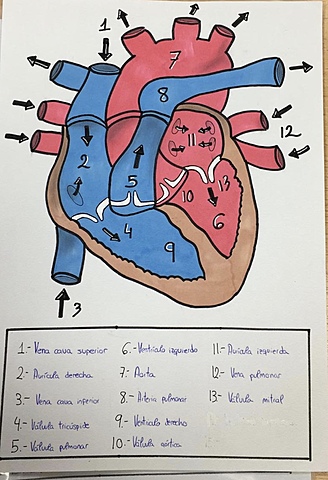 1
7
8
11
12
2
5
10
13
6
4
9
3
1.- Vena cava superior
2.- Aurícula derecha
3.- Vena cava inferior
4.- Válvula tricúspide
5.- Válvula pulmonar
6.- Ventrículo izquierdo
7.- Aorta
8.- Arteria pulmonar
9.- Ventrículo derecho
10.- Válvula aórtica
11.- Aurícula izquierda
12.- Vena pulmonar
13.- Válvula mitral